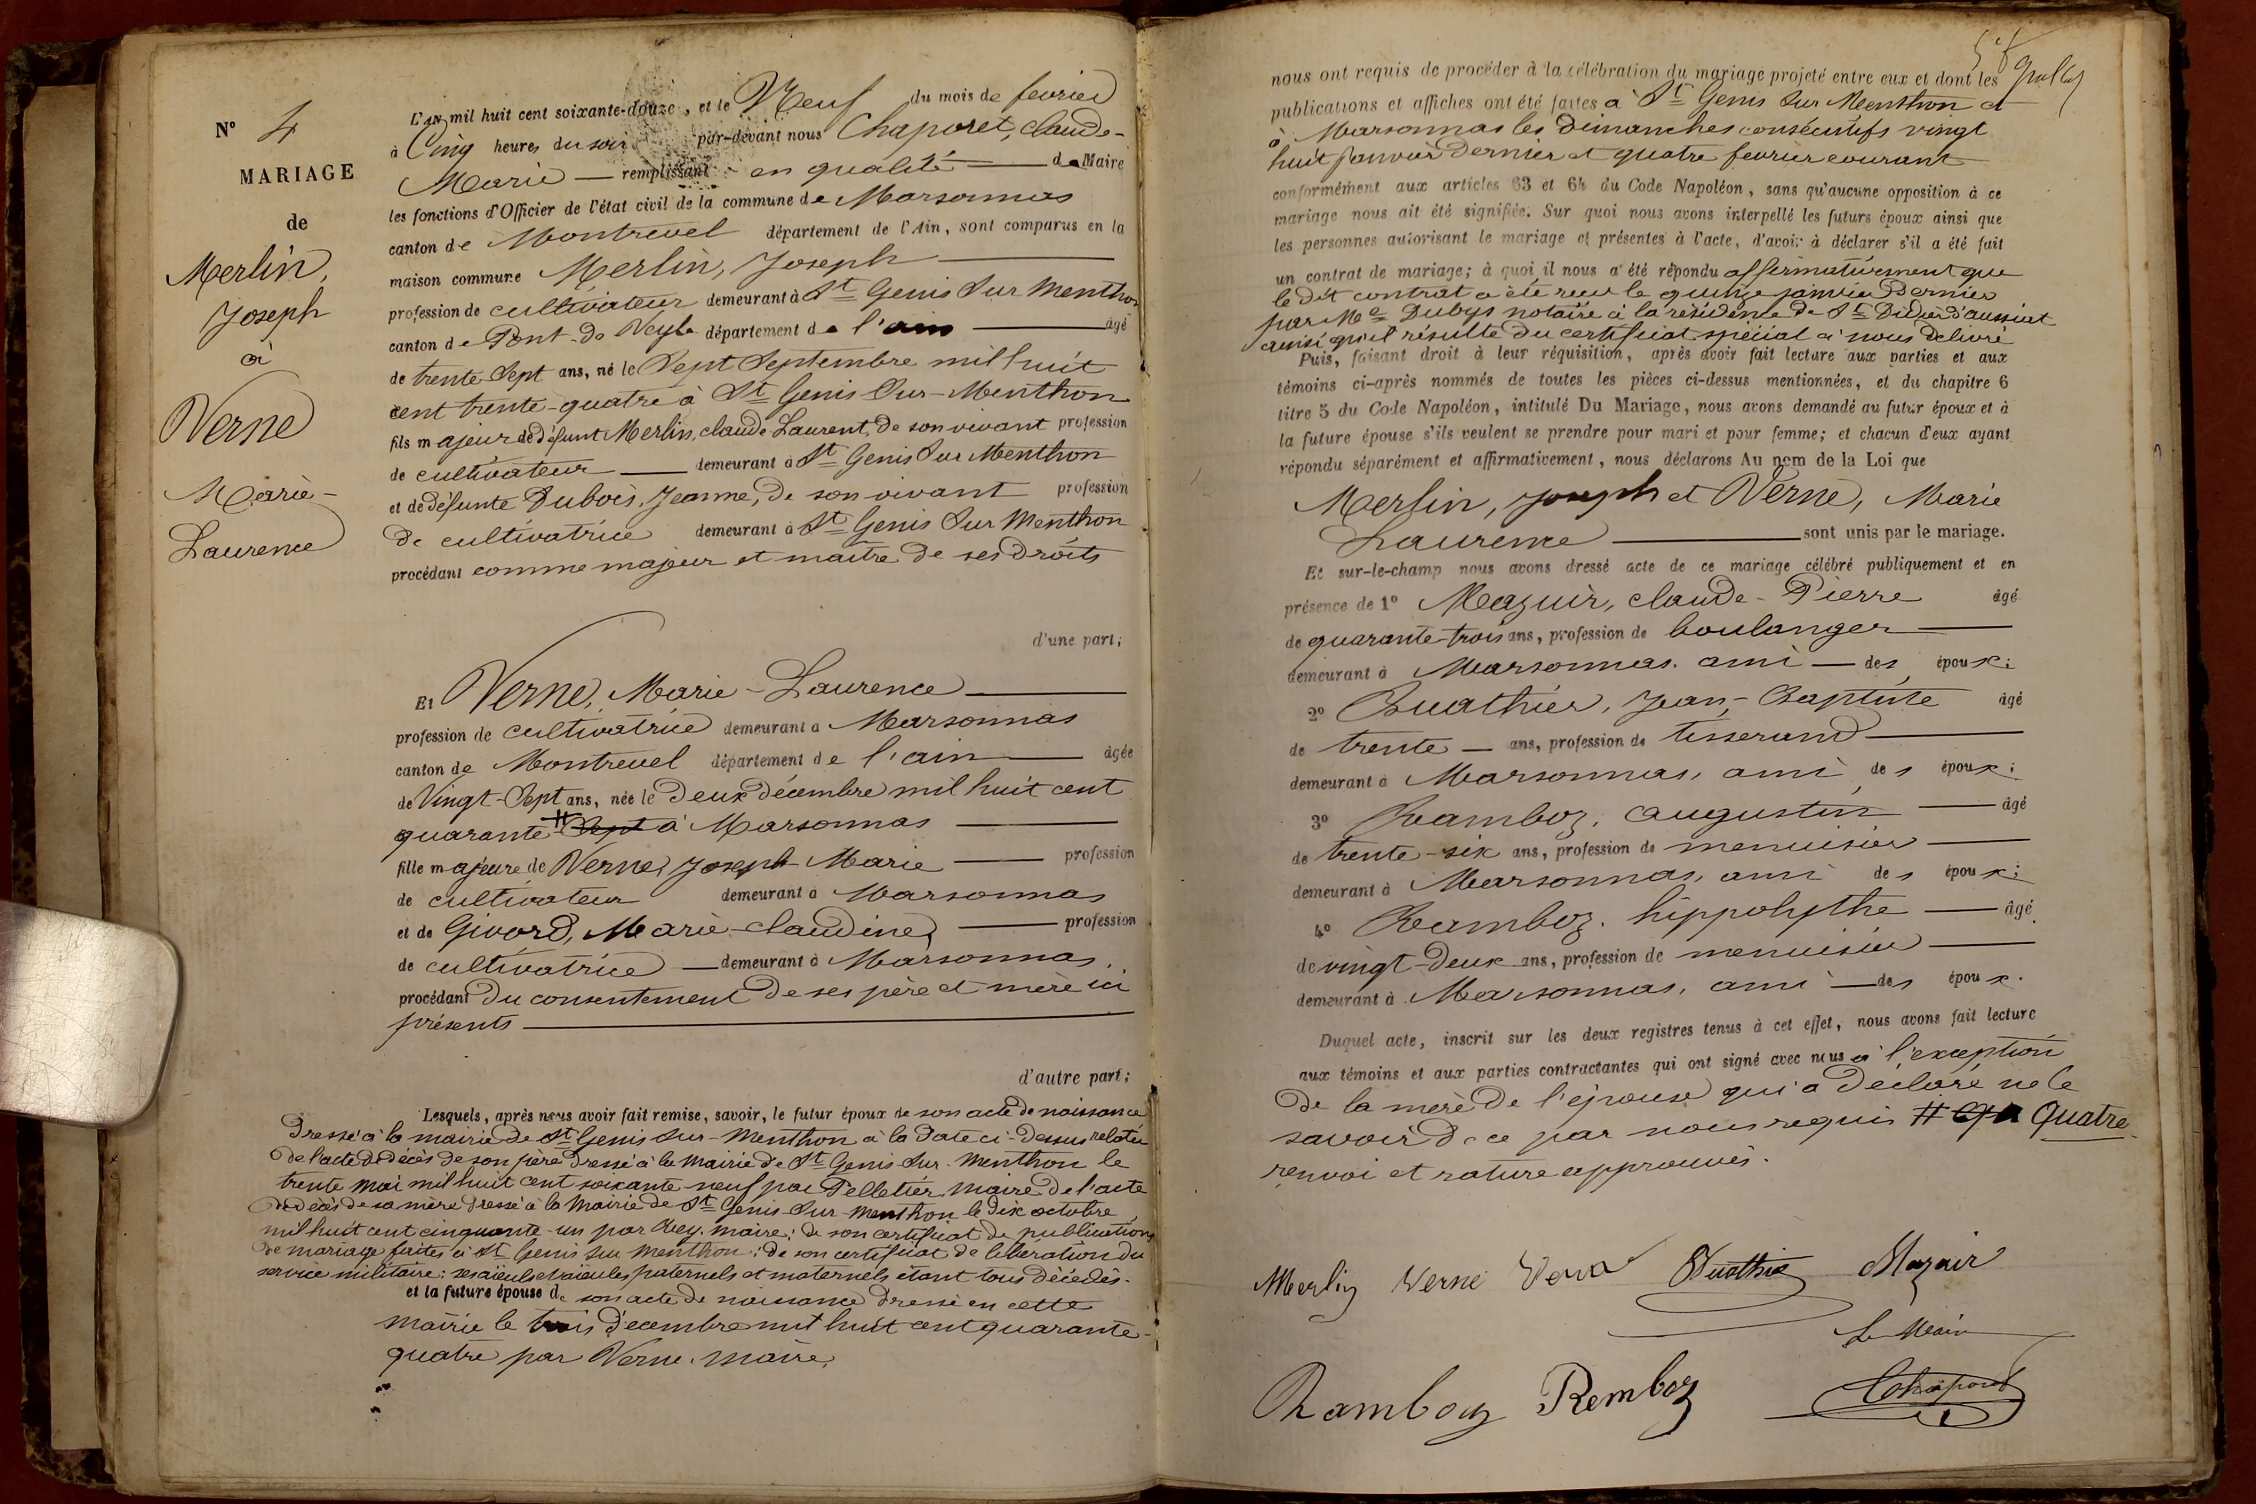 N° 4
MARIAGE
de
Merlin,
Joseph
à
Verne
Marie-
Laurence
L'AN mil huit cent soixante-douze, et le Neuf du mois de fevrier
à Cinq heures du soir par-devant nous Chaporet, claude-
Marie — remplissant en qualité — de Maire
les fonctions d'Officier de l'état civil de la commune de Marsonnas
canton de Montrevel département de l'Ain, sont comparus en la
maison commune Merlin, Joseph
profession de cultivateur demeurant à St Genis Sur Menthon
canton de Pont-de Veyle département de l'ain âgé
de trente Sept ans, né le Sept Septembre mil huit
cent trente-quatre à St Genis Sur-Menthon
fils majeur de défunt Merlin, claude Laurent, de son vivant profession
de cultivateur — demeurant à St Genis Sur Menthon
et de défunte Dubois, Jeanne, de son vivant profession
de cultivatrice demeurant à St Genis Sur Menthon
procédant comme majeur et maître de ses droits
d'une part;
Et Verne, Marie-Laurence
profession de cultivatrice demeurant à Marsonnas
canton de Montrevel département de l'ain âgée
de Vingt-Sept ans, née le Deux décembre mil huit cent
quarante # Sept à Marsonnas
fille majeure de Verne, Joseph-Marie profession
de cultivateur demeurant à Marsonnas
et de Givord, Marie-claudine, profession
de cultivatrice — demeurant à Marsonnas.
procédant du consentement de ses père et mère ici
présents
d'autre part;
Lesquels, après nous avoir fait remise, savoir, le futur époux de son acte de naissance
Dressé à la mairie de St Genis Sur-Menthon à la date ci-dessus relatée
de l'acte de décès de son père dressé à la Mairie de St Genis Sur-Menthon le
trente mai mil huit cent soixante-neuf par Pelletier, maire de l'acte
de décès de sa mère dressé à la Mairie de St Genis Sur-Menthon le dix octobre
mil huit cent cinquante-un par Rey, maire; de son certificat de publications
de mariage faites à St Genis Sur Menthon; de son certificat de libération du
service militaire; ses aïeuls et aïeules paternels et maternels étant tous décédés.
et la future épouse de son acte de naissance dressé en cette
mairie le trois décembre mil huit cent quarante-
quatre par Verne, maire,
nous ont requis de procéder à la célébration du mariage projeté entre eux et dont les
publications et affiches ont été faites à St Genis Sur Menthon et
à Marsonnas les dimanches consécutifs vingt
huit janvier Dernier et quatre fevrier courant
conformément aux articles 63 et 64 du Code Napoléon, sans qu'aucune opposition à ce
mariage nous ait été signifiée. Sur quoi nous avons interpellé les futurs époux ainsi que
les personnes autorisant le mariage et présentes à l'acte, d'avoir à déclarer s'il a été fait
un contrat de mariage; à quoi il nous a été répondu affirmativement que
le dit contrat a été recu le quinze janvier Dernier
par Me Dubys notaire à la résidence de St Didier d'aussiat
ainsi qu'il résulte du certificat spécial à nous délivré
Puis, faisant droit à leur réquisition, après avoir fait lecture aux parties et aux
témoins ci-après nommés de toutes les pièces ci-dessus mentionnées, et du chapitre 6
titre 5 du Code Napoléon, intitulé Du Mariage, nous avons demandé au futur époux et à
la future épouse s'ils veulent se prendre pour mari et pour femme; et chacun d'eux ayant
répondu séparément et affirmativement, nous déclarons Au nom de la Loi que
Merlin, Joseph et Verne, Marie
Laurence sont unis par le mariage.
Et sur-le-champ nous avons dressé acte de ce mariage célébré publiquement et en
présence de 1° Mazuir, claude-Pierre âgé
de quarante-trois ans, profession de boulanger
demeurant à Marsonnas. ami — des époux;
2° Buathier, Jean-Baptiste âgé
de trente — ans, profession de tisserand
demeurant à Marsonnas, ami des époux;
3° Ramboz, augustin âgé
de trente-six ans, profession de menuisier
demeurant à Marsonnas, ami des époux;
4° Ramboz, hippolythe âgé
de vingt-deux ans, profession de menuisier
demeurant à Marsonnas, ami — des époux.
Duquel acte, inscrit sur les deux registres tenus à cet effet, nous avons fait lecture
aux témoins et aux parties contractantes qui ont signé avec nous à l'exception
De la mère de l'épouse qui a déclaré ne le
savoir de ce par nous requis # Quatre
renvoi et rature approuvés.
Merlin Verne Verne Buathier Mazuir
Le Maire
Ramboz Ramboz Chaporet